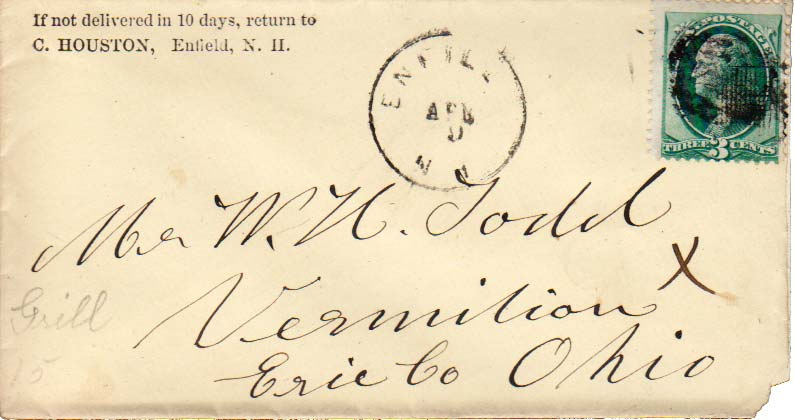 If not delivered in 10 days, return to
C. HOUSTON, Enfield, N. H.
ENFIEL
APR
9
N H
POSTAGE
THREE 3 CENTS
Mr W. H. Todd
X
Vermilion
Erie Co Ohio
Grill
15